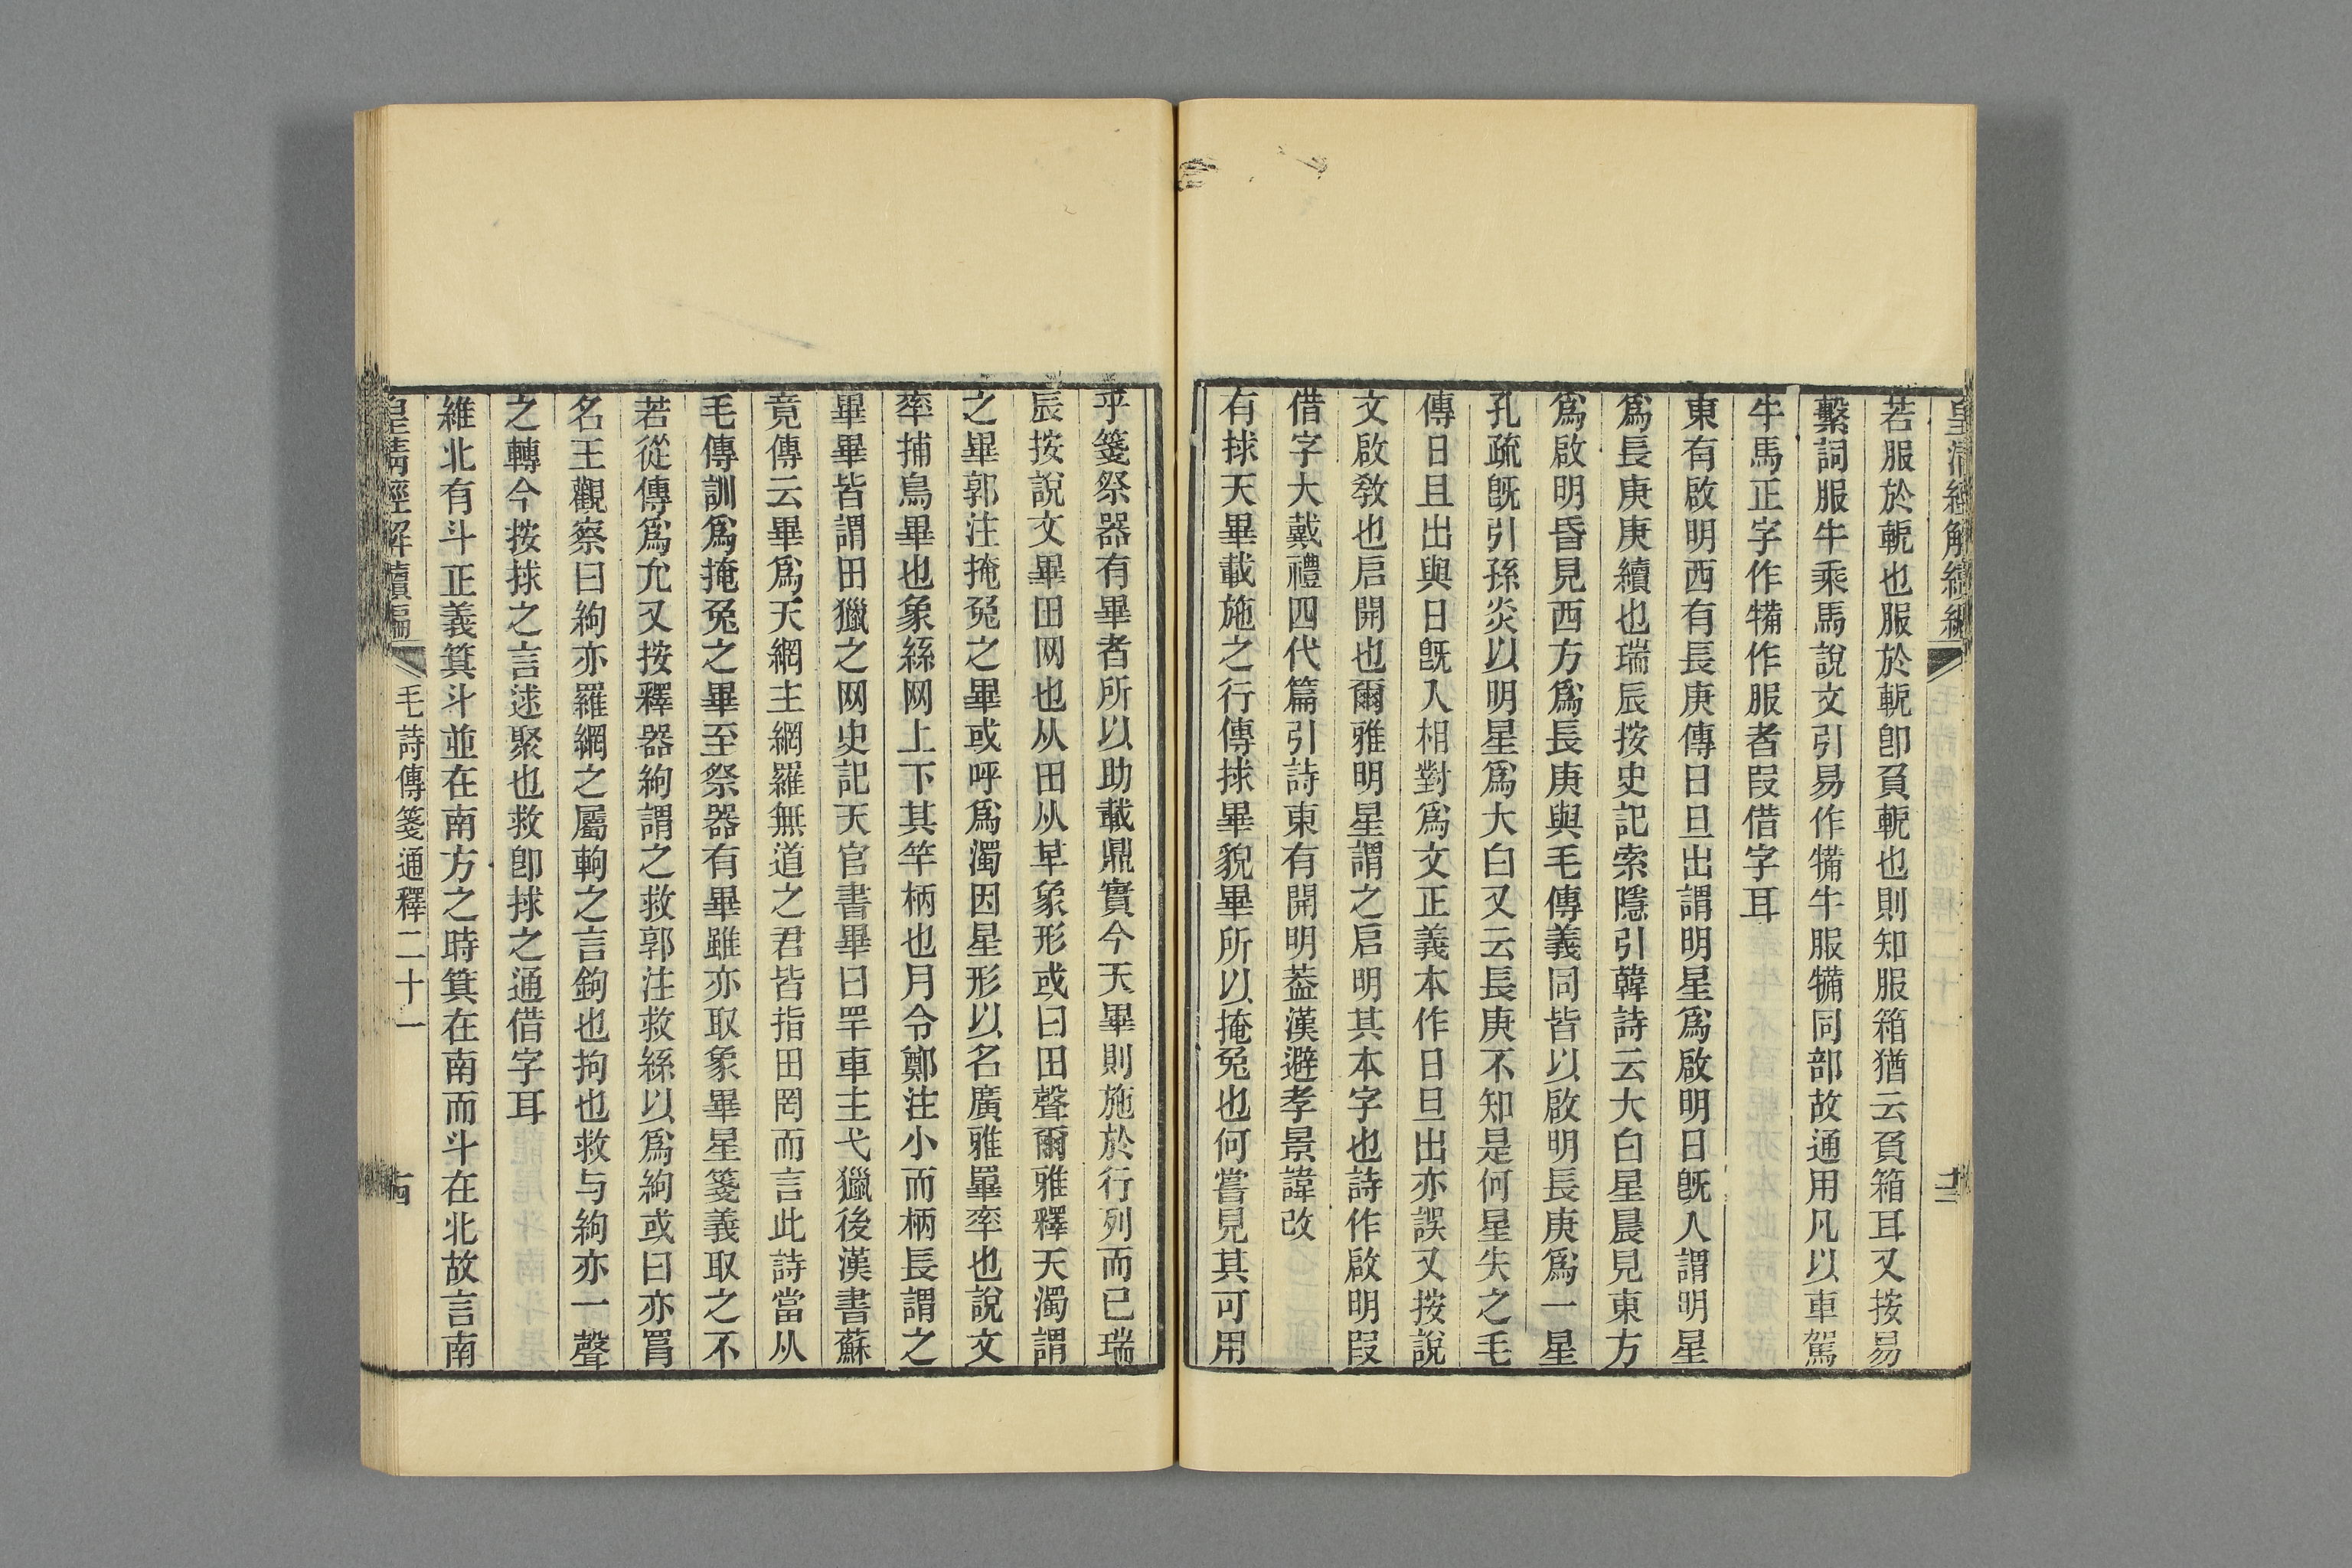 皇清經解續編
若服於軶也服於軶卽負軶也則知服箱猶云負箱耳又按易
繫詞服牛乘馬說文引易作犕牛服犕同部故通用凡以車駕
牛馬正字作犕作服者叚借字耳
東有啟明西有長庚傳日旦出謂明星爲啟明日旣入謂明星
爲長庚庚續也瑞辰按史記索隱引韓詩云大白星晨見東方
爲啟明昏見西方爲長庚與毛傳義同皆以啟明長庚爲一星
孔疏旣引孫炎以明星爲大白又云長庚不知是何星失之毛
傳日且出與日旣入相對爲文正義本作日旦出亦誤又按說
文啟敎也启開也爾雅明星謂之启明其本字也詩作啟明叚
借字大戴禮四代篇引詩東有開明葢漢避孝景諱改
有捄天畢載施之行傳捄畢貌畢所以掩兔也何嘗見其可用
乎箋祭器有畢者所以助載鼎實今天畢則施於行列而已瑞
辰按說文畢田网也从田从𠦒象形或曰田聲爾雅釋天濁謂
之畢郭注掩兔之畢或呼爲濁因星形以名廣雅罼率也說文
率捕鳥畢也象絲网上下其竿柄也月令鄭注小而柄長謂之
畢畢皆謂田獵之网史記天官書畢曰罕車主弋獵後漢書蘇
竟傳云畢爲天網主網羅無道之君皆指田罔而言此詩當从
毛傳訓爲掩兔之畢至祭器有畢雖亦取象畢星箋義取之不
若從傳爲允又按釋器絇謂之救郭注救絲以爲絇或曰亦罥
名王觀察曰絇亦羅網之屬軥之言鉤也拘也救与絇亦一聲
之轉今按捄之言逑聚也救卽捄之通借字耳
維北有斗正義箕斗並在南方之時箕在南而斗在北故言南
皇淸經解續編 毛詩傳箋通釋二十一 十四